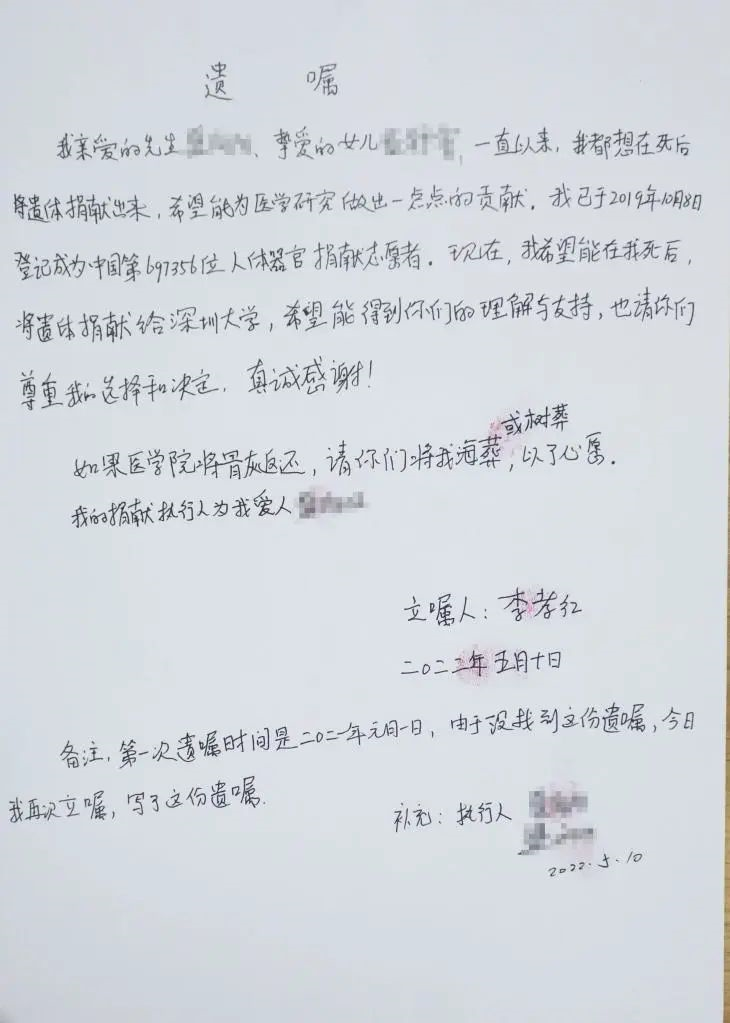 遗 嘱
我亲爱的先生 、挚爱的女儿 ,一直以来,我都想在死后
将遗体捐献出来,希望能为医学研究做出一点点的贡献。我已于2019年10月8日
登记成为中国第697356位人体器官捐献志愿者。现在,我希望能在我死后,
将遗体捐献给深圳大学,希望能得到你们的理解与支持,也请你们
尊重我的选择和决定,真诚感谢!
或树葬
如果医学院将骨灰返还,请你们将我海葬,以了心愿。
我的捐献执行人为我爱人
立嘱人:李孝红
二〇二二年五月十日
备注,第一次遗嘱时间是二〇二一年元月一日,由于没找到这份遗嘱,今日
我再次立嘱,写了这份遗嘱.
补充:执行人
2022.5.10